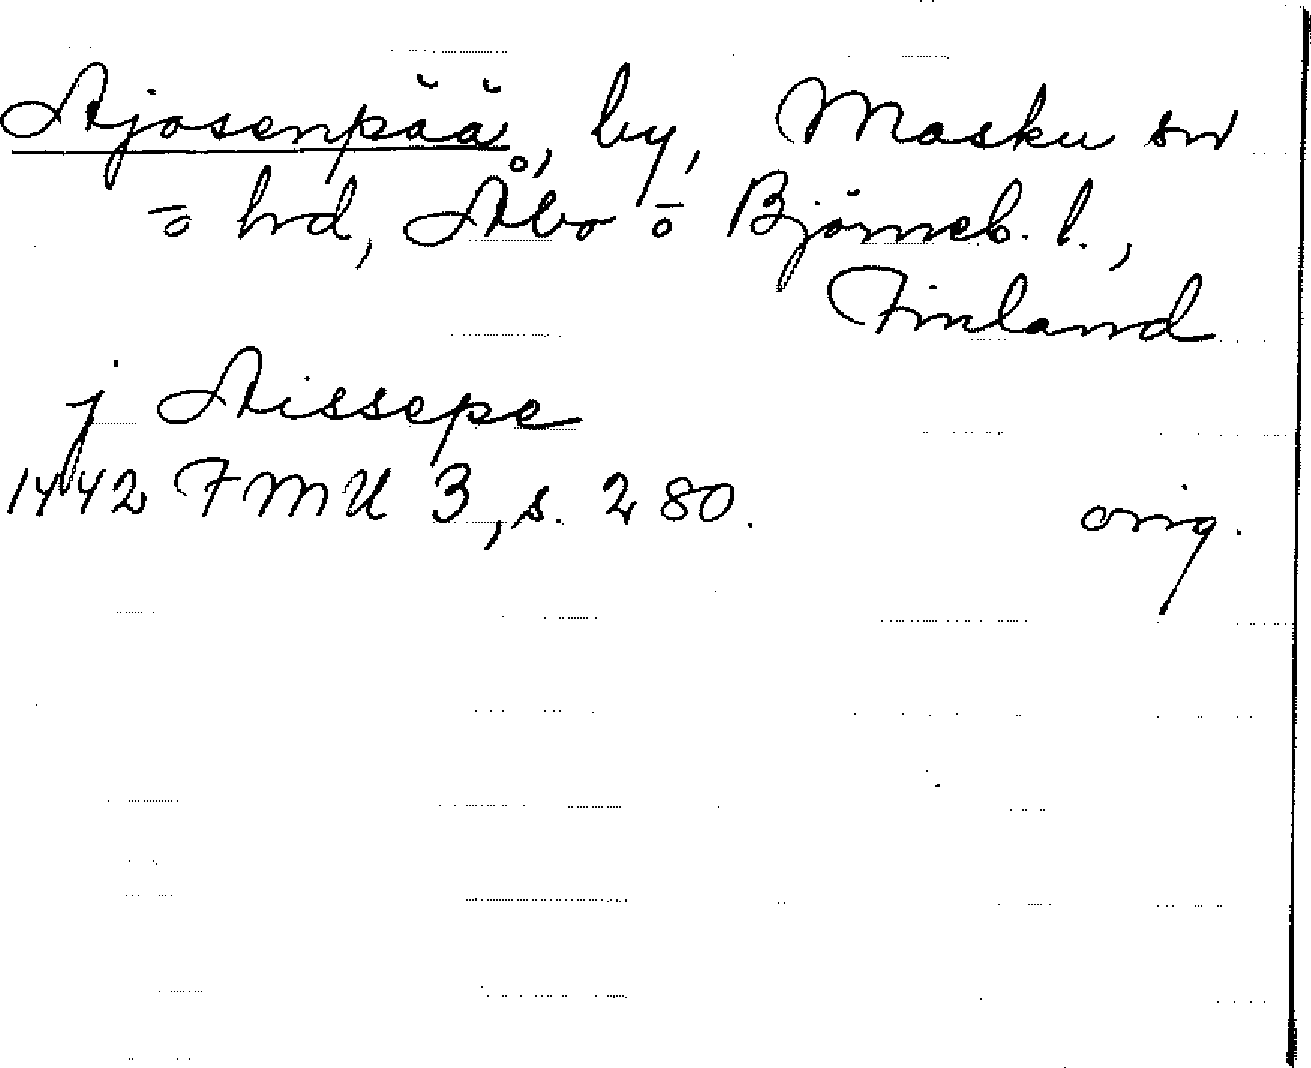 Ajosenpää, by, Masku sn
ō hd, Åbo ō Björneb. l.,
Finland
j Aissepe
1442 FMU 3, s. 280. orig.